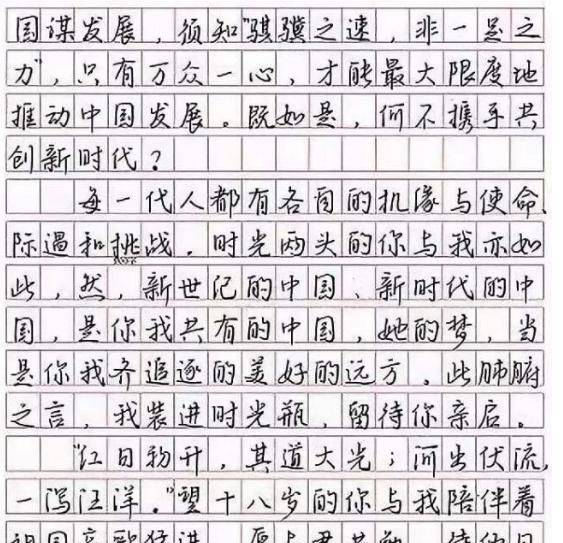 国谋发展，须知"骐骥之速，非一足之
力"，只有万众一心，才能最大限度地
推动中国发展。既如是，何不携手共
创新时代？
每一代人都有各自的机缘与使命、
际遇和挑战。时光两头的你与我亦如
此，然，新世纪的中国、新时代的中
国，是你我共有的中国，她的梦，当
是你我齐追逐的美好的远方。此肺腑
之言，我装进时光瓶，留待你亲启。
"红日初升，其道大光；河出伏流，
一泻汪洋。"望十八岁的你与我陪伴着